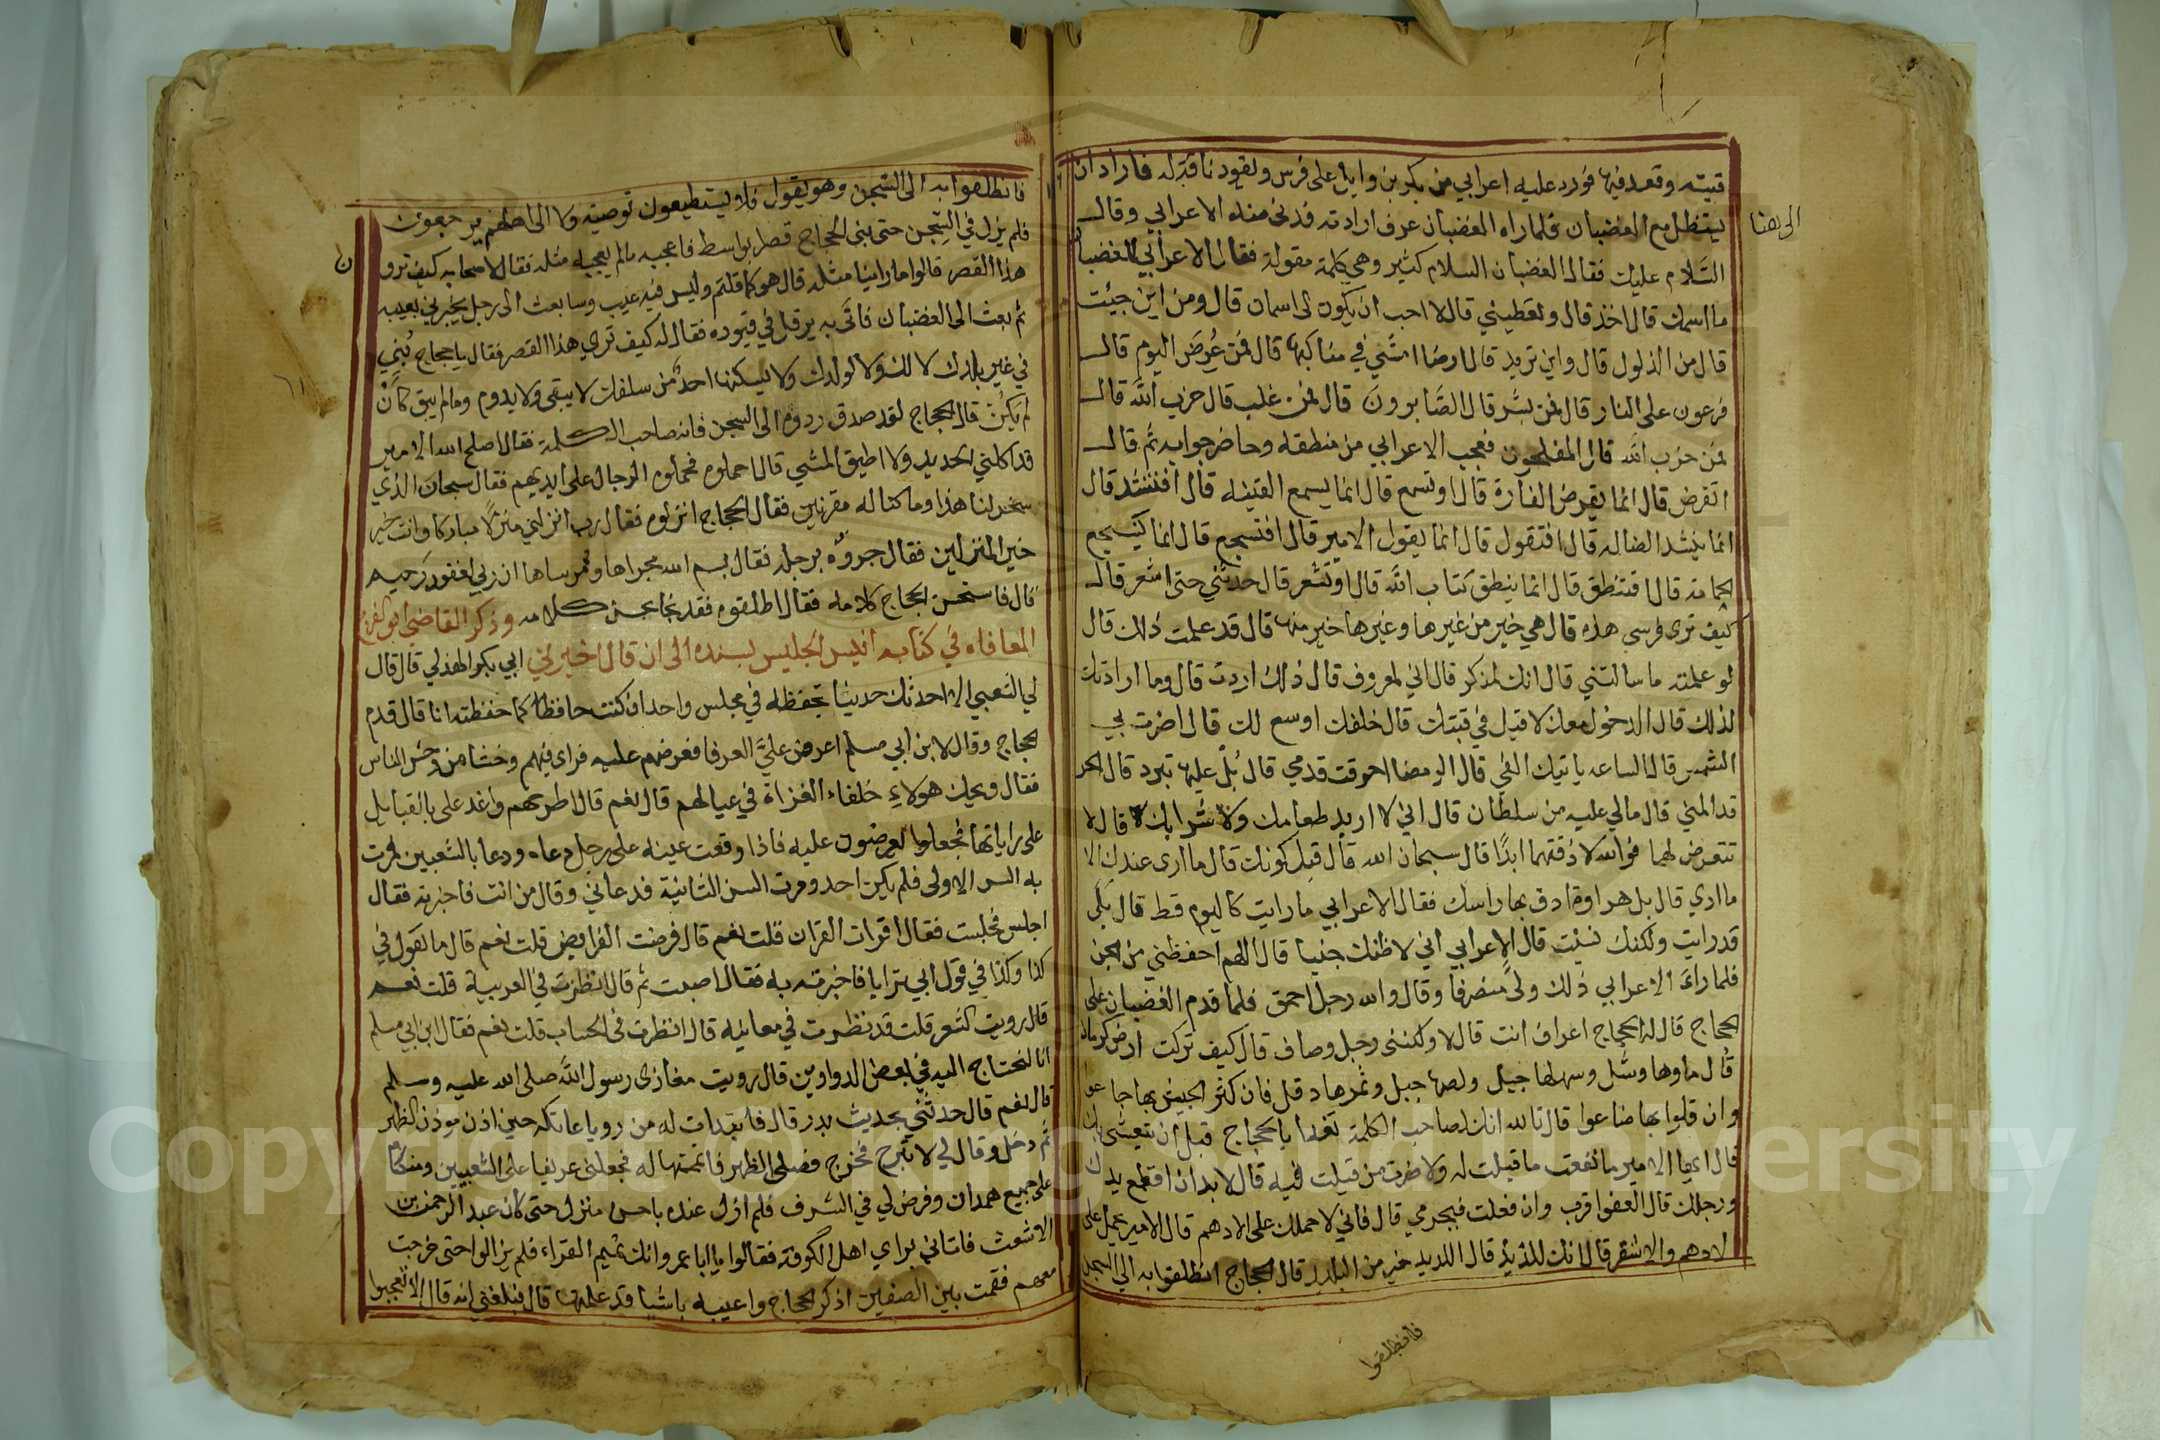 قبته وقعد فيها فورد عليه اعرابي من بكر بن وايل على فرس ويقود ناقة له فاراد ان
يستظل مع الغضبان فلما راه الغضبان عرف ارادته فدنى منه الاعرابي وقال
الى هنا
السلام عليك فقال الغضبان السلام كثير وهي كلمة مقولة فقال الاعرابي للغضبان
ما اسمك قال اخذ قال وتعطيني قال لا احب ان يكون لي اسمان قال ومن اين جيئت
قال من الذلول قال واين تريد قال ارضا امشي في مناكبها قال فمن عرض اليوم قال
فرعون على النار قال فمن بشر قال الصابرون قال فمن غلب قال حزب الله قال
فمن حزب الله قال المفلحون فعجب الاعرابي من منطقه وحاضر جوابه ثم قال
اتقرض قال انما يقرض الفارة قال اوتسمع قال انما يسمع القينه قال افتنشد قال
انما ينشد الضاله قال افتقول قال انما يقول الامير قال افتسجع قال انما يسجع
الحمامه قال افتنطق قال انما ينطق كتاب الله قال اوتشعر قال حدثني حتى اشعر قال
كيف ترى فرسي هذه قال هي خير من غيرها وغيرها خير منها قال قد علمت ذلك قال
لو علمته ما سالتني قال انك لمذكر قال اني لمعروف قال ذلك اردت قال وما ارادتك
لذلك قال الدخول معك لاقيل في قبتك قال خلفك اوسع لك قال اضرت بي
الشمس قال الساعه ياتيك الفي قال الرمضا احرقت قدمي قال بل عليها تبرد قال الحر
قد المني قال مالي عليه من سلطان قال اني لا اريد طعامك ولا شرابك قال لا
تتعرض لهما فوالله لا ذقتهما ابدا قال سبحان الله قال قبل كونك قال ما ارى عندك الا
ما ادي قال بل هراوة ادق بها راسك فقال الاعرابي ما رايت كاليوم قط قال بلى
قد رايت ولكنك نسيت قال الاعرابي اني لاظنك جنيا قال اللهم احفظني من الجن
فلما راء الاعرابي ذلك ولى منصرفا وقال والله رجل احمق فلما قدم الغضبان على
الحجاج قال له الحجاج اعراف انت قال لا ولكنني رجل وصاف قال كيف تركت ارض كرمان
قال ماوها وشل وسهلها جبل ولصها جبل وثمرها دقل فان كثر الجيش بها جاعوا
وان قلوا بها ضاعوا قال تالله انك لصاحب الكلمة تغدا يا حجاج قبل ان يتعشى بك
قال ايها الامير ما نفعت ما قيلت له ولا ضرت من قيلت فيه قال لا بد ان اقطع يدك
ورجلك قال العفو اقرب وان فعلت فبجرمي قال فاني لاحملك على الادهم قال الامير يحمل على
الادهم والاشقر قال انك للذيذ قال اللديد خير من البليد قال الحجاج انطلقوا به الى السجن
فانطلقوا
فانطلقوا به الى السجن وهو يقول فلا يستطيعون توصية ولا الى اهلهم يرجعون
فلم يزل في السجن حتى بنى الحجاج قصرا بواسط فاعجبه مالم يعجبه مثله فقال لاصحابه كيف ترو
ن
هذا القصر قالوا ما راينا مثله قال هو كما قلتم وليس فيه عيب وسابعث الى رجل يخبرني بعيبه
ثم بعث الى الغضبان فاتى به يرفل في قيوده فقال له كيف ترى هذا القصر فقال يا حجاج بني
في غير بلدك لا لك ولا لولدك ولا يسكنها احد من سلفك لا يبقى ولا يدوم وما لم يبق كان
لم يكن قال الحجاج لقد صدق ردوه الى السجن فانه صاحب الكلمة فقال اصلح الله الامير
قد اكلني الحديد ولا اطيق المشي قال احملوه فحملوه الرجال على ايديهم فقال سبحان الذي
سخر لنا هذا وما كنا له مقرنين فقال الحجاج انزلوه فقال رب انزلني منزلا مباركا وانت خير
خير المنزلين فقال جروه برجله فقال بسم الله مجراها ومرساها ان ربي لغفور رحيم
قال فاستحسن الحجاج كلامه فقال اطلقوه فقد نجا بحسن كلامه وذكر القاضي ابو الفرج
المعافاه في كتابه انيس الجليس بسنده الى ان قال اخبرني ابي بكر الهذلي قال قال
لي الشعبي الا احدثك حديثا تحفظه في مجلس واحد ان كنت حافظا كما حفظته انا قال قدم
الحجاج وقال لابن ابي مسلم اعرض علي العرفا فعرضهم عليه فراى فيهم وخشا من وخش الناس
فقال ويحك هولاء خلفاء الغزاة في عيالهم قال نعم قال اطرحهم واغد على بالقبايل
على راياتها فجعلوا يعرضون عليه فاذا وقعت عينه على رجل دعاه ودعا بالشعبين فمرت
به السن الاولى فلم يكن احد ومرت السن الثانية فدعاني وقال من انت فاخبرته فقال
اجلس فجلست فقال اقرات القران قلت نعم قال فرضت الفرايض قلت نعم قال ما تقول في
كذا وكذا في قول ابي ترابا فاخبرته به فقال اصبت ثم قال انظرت في العربية قلت نعم
قال رويت الشعر قلت قد نظرت في معانيه قال انظرت في الحساب قلت نعم فقال ابن ابي مسلم
انا لنحتاج اليه في بعض الدواوين قال رويت مغازي رسول الله صلى الله عليه وسلم
قال نعم قال حدثني بحديث بدر قال فابتدات له من رويا عاتكه حين اذن موذن الظهر
ثم دخل وقال لي لا تبرح فخرج فصلى الظهر فاتممتها له فجعلني عريفا على الشعبيين ومنكبا
على جميع همدان وفرض لي في الشرف فلم ازل عنده باحسن منزل حتى كان عبد الرحمن بن
الاشعث فاتاني براي اهل الكوفة فقالوا يا ابا عمر وانك زعيم القراء فلم يزالوا حتى خرجت
معهم فقمت بين الصفين اذكر الحجاج واعيبه باشيا قد علمتها قال فبلغني انه قال الا تعجبوا
Copyright © King Saud University